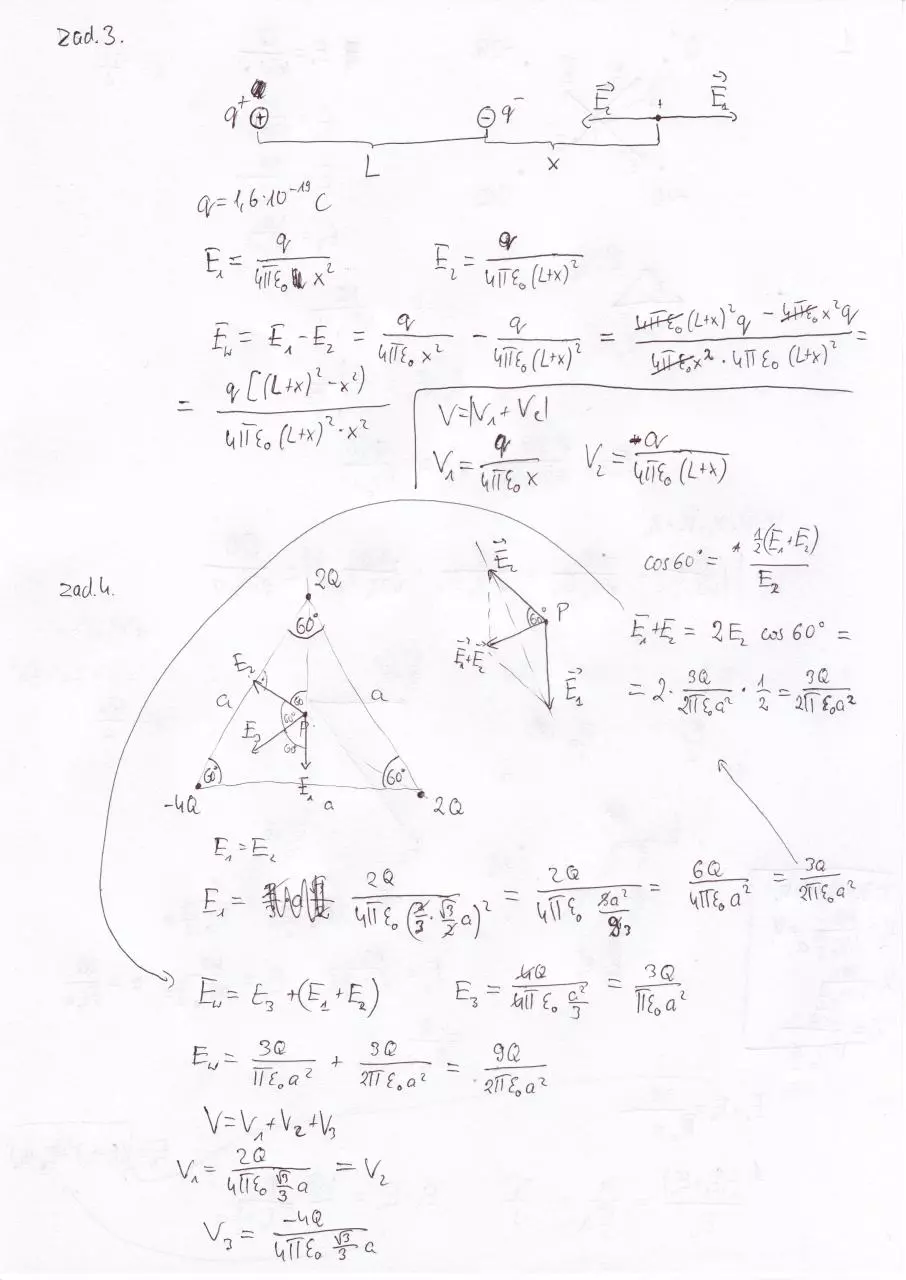 zad.3.
q⁺ ⊕ ⊖ q⁻ E⃗₂ + E⃗₁
L x
q = 1,6·10⁻¹⁹ C
E₁ = q / 4πε₀ x² E₂ = q / 4πε₀ (L+x)²
E_w = E₁ - E₂ = q / 4πε₀ x² - q / 4πε₀ (L+x)² = 4πε₀ (L+x)² q - 4πε₀ x² q / 4πε₀ x² · 4πε₀ (L+x)² =
= q [(L+x)² - x²) / 4πε₀ (L+x)² · x²
V = |V₁ + V₂|
V₁ = q / 4πε₀ x V₂ = -q / 4πε₀ (L+x)
zad.4.
2Q
60°
E₂
a a
60°
60°
P
E₃
60°
60° 60°
-4Q E₁ a 2Q
E⃗₂
60° P
E⃗₁+E⃗₂
E⃗₁
cos 60° = ½(E₁+E₂) / E₂
E₁+E₂ = 2E₂ cos 60° =
= 2 · 3Q / 2πε₀a² · 1/2 = 3Q / 2πε₀a²
E₁ = E₂
E₁ = 2Q / 4πε₀ (2/3 · √3/2 a)² = 2Q / 4πε₀ 3a²/9 3 = 6Q / 4πε₀a² = 3Q / 2πε₀a²
E_w = E₃ + (E₁+E₂) E₃ = 4Q / 4πε₀ a²/3 = 3Q / πε₀a²
E_w = 3Q / πε₀a² + 3Q / 2πε₀a² = 9Q / 2πε₀a²
V = V₁ + V₂ + V₃
V₁ = 2Q / 4πε₀ √3/3 a = V₂
V₃ = -4Q / 4πε₀ √3/3 a